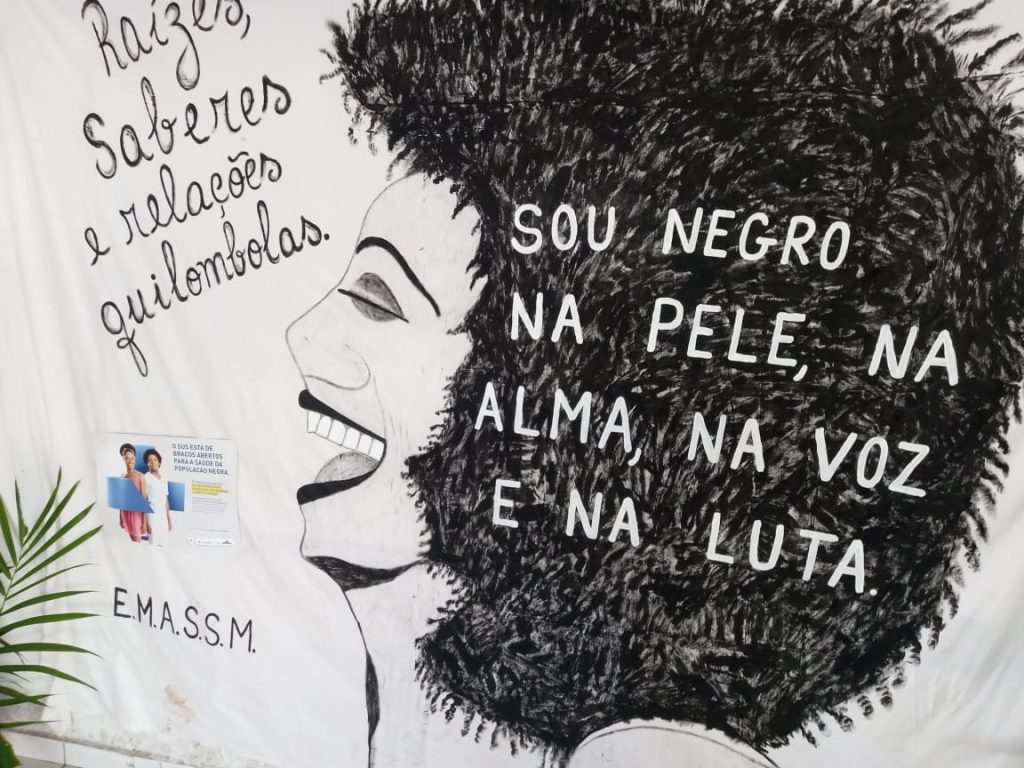 Raízes,
Saberes
e relações
quilombolas.
SOU NEGRO
NA PELE, NA
ALMA, NA VOZ
E NA LUTA.
O SUS ESTÁ DE
BRAÇOS ABERTOS
PARA A SAÚDE DA
POPULAÇÃO NEGRA.
E.M.A.S.S.M.